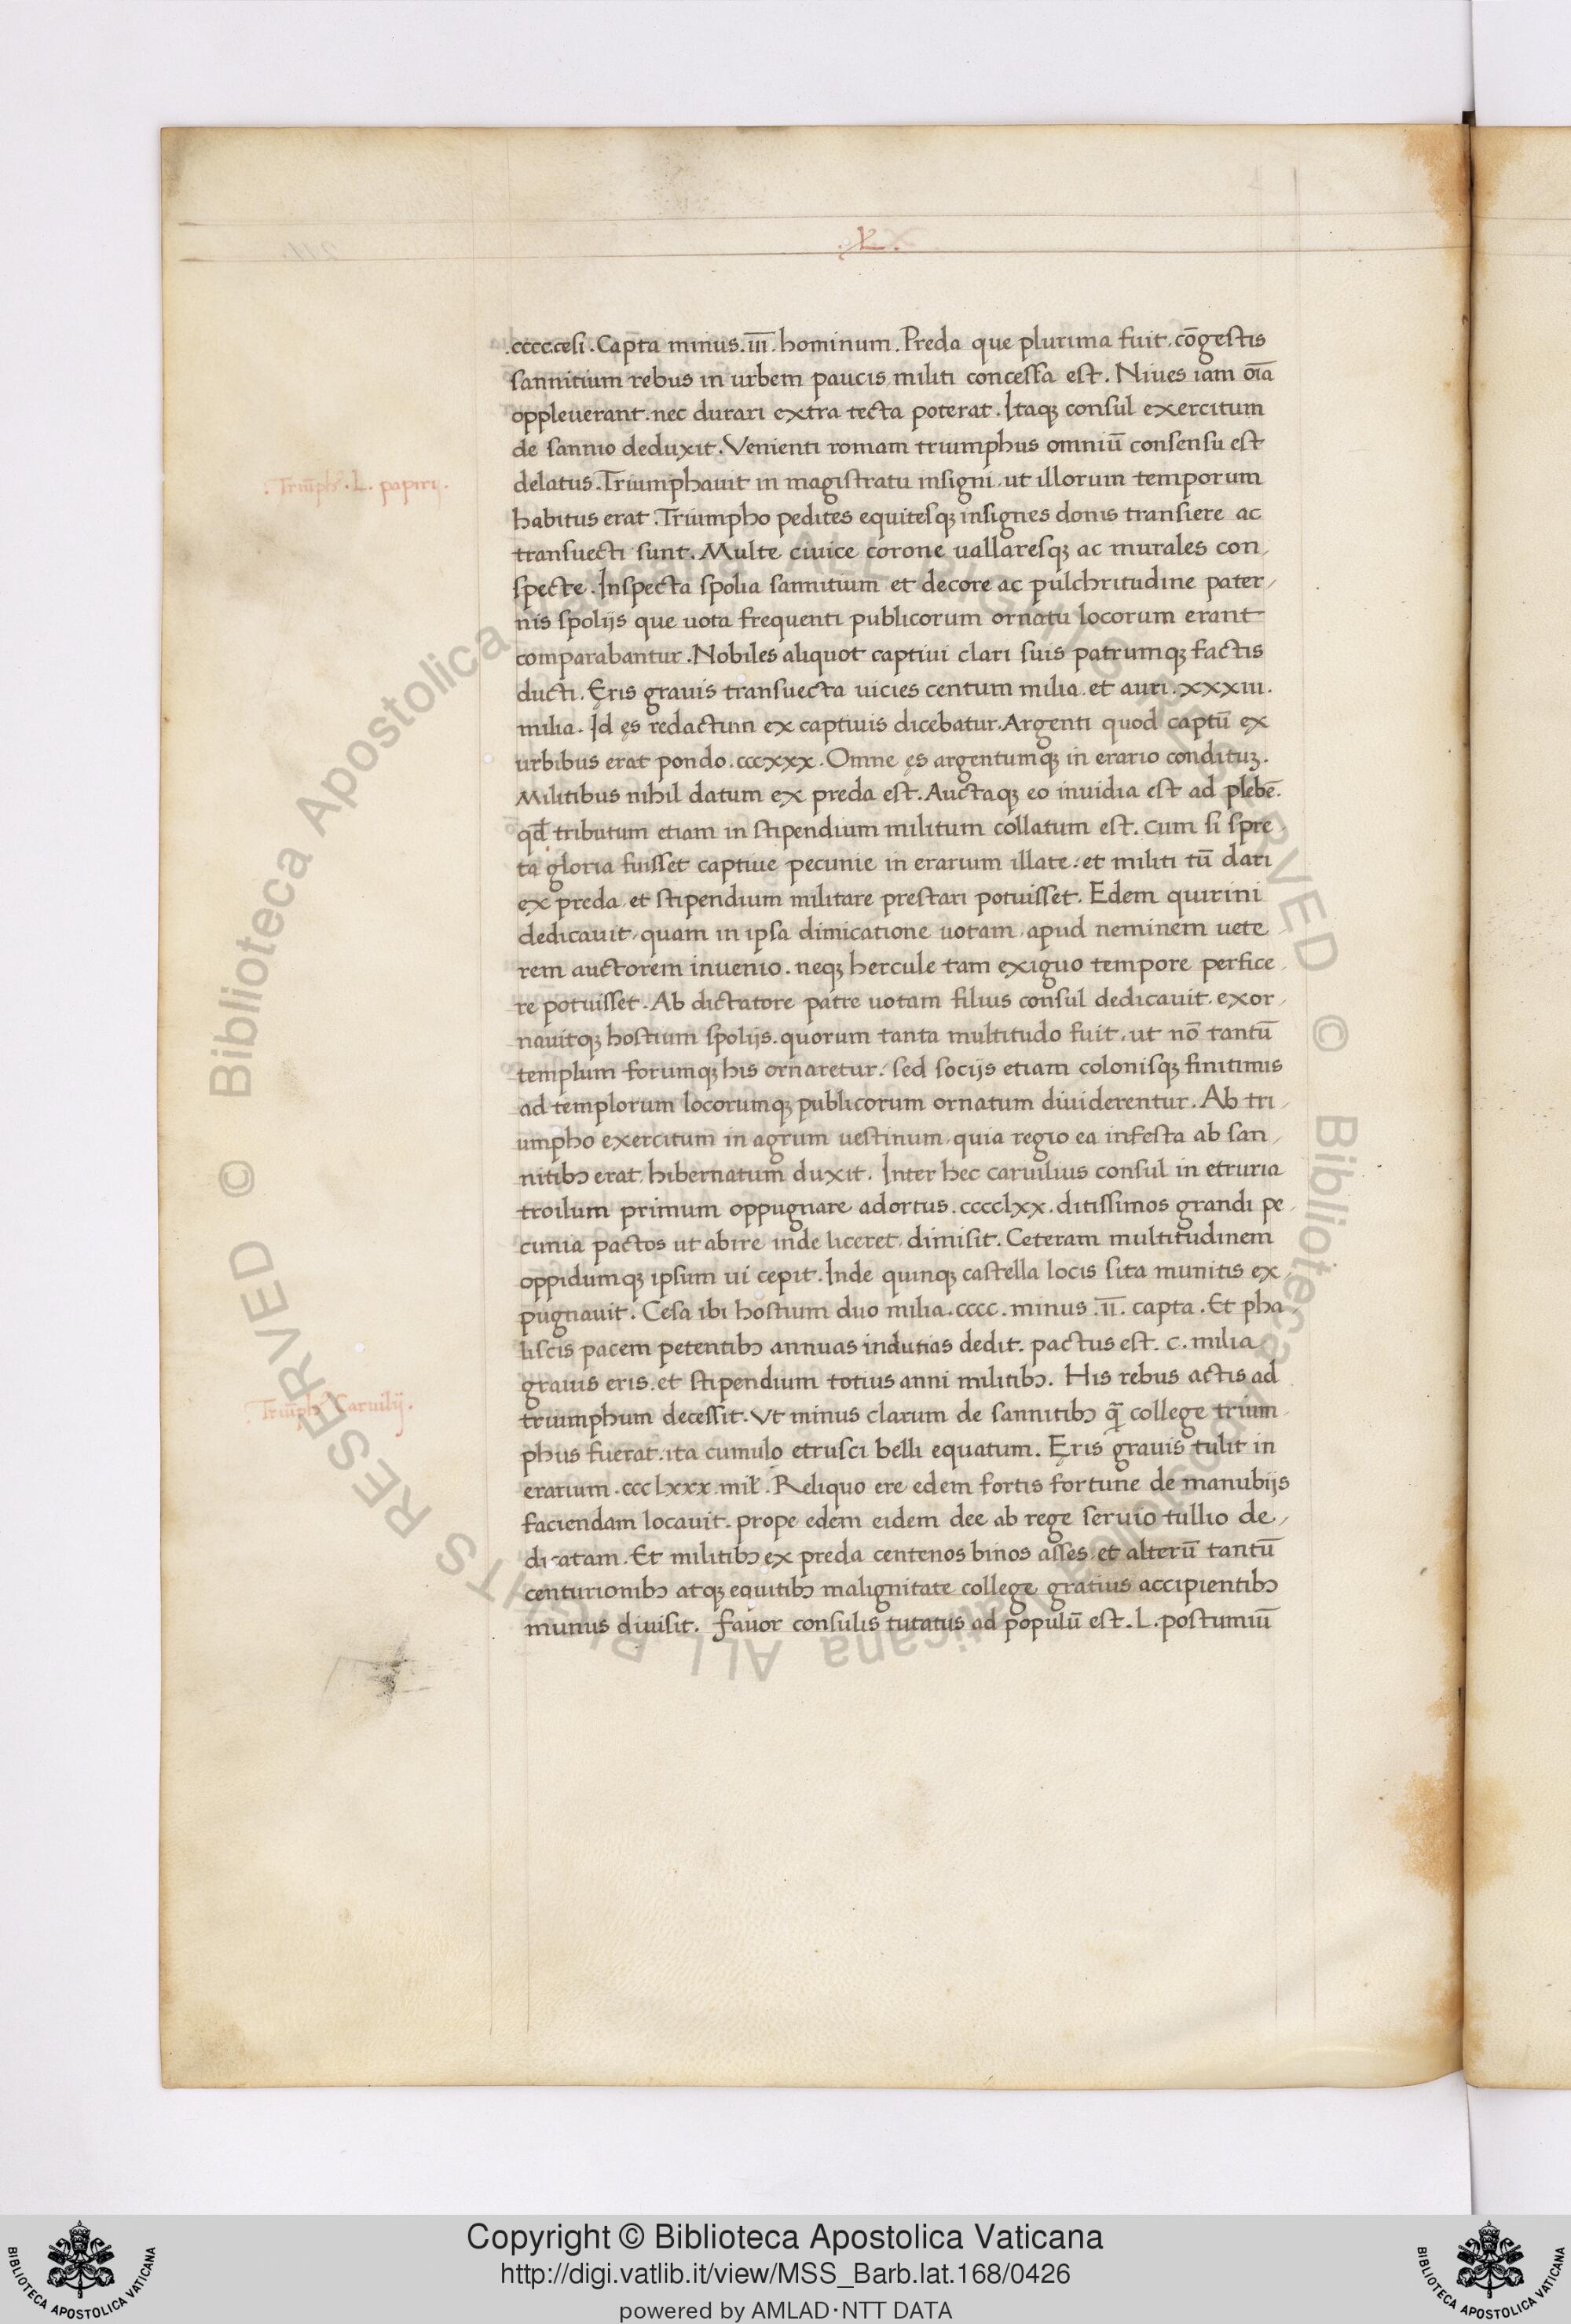 .X.
.cccc.cesi. Capta minus .iii̅. hominum. Preda que plurima fuit, co̅gestis
sannitium rebus in urbem paucis, militi concessa est. Niues iam oi̅a
oppleuerant. nec durari extra tecta poterat. Itaqꝫ consul exercitum
de sannio deduxit. Venienti romam triumphus omniu̅ consensu est
delatus. Triumphauit in magistratu insigni, ut illorum temporum
.Triu̅ph⁹. L. papirij.
habitus erat. Triumpho pedites equitesqꝫ insignes donis transiere ac
transuecti sunt. Multe ciuice corone uallaresqꝫ ac murales con,
specte. Inspecta spolia sannitium et decore ac pulchritudine pater,
nis spolijs que uota frequenti publicorum ornatu locorum erant
comparabantur. Nobiles aliquot captiui clari suis patrumqꝫ factis
ducti. Ęris grauis transuecta uicies centum milia. et auri. xxxiii.
milia. Id ęs redactum ex captiuis dicebatur. Argenti quod captu̅ ex
urbibus erat pondo. cccxxx. Omne ęs argentumqꝫ in erario condituꝫ.
Militibus nihil datum ex preda est. Auctaqꝫ eo inuidia est ad plebe̅.
qd̅ tributum etiam in stipendium militum collatum est. cum si spre,
ta gloria fuisset captiue pecunie in erarium illate: et militi tu̅ dari
ex preda, et stipendium militare prestari potuisset. Edem quirini
dedicauit, quam in ipsa dimicatione uotam, apud neminem uete
rem auctorem inuenio. neqꝫ hercule tam exiguo tempore perfice,
re potuisset. Ab dictatore patre uotam filius consul dedicauit. exor,
nauitqꝫ hostium spolijs. quorum tanta multitudo fuit, ut no̅ tantu̅
templum forumqꝫ his ornaretur: sed socijs etiam colonisqꝫ finitimis
ad templorum locorumqꝫ publicorum ornatum diuiderentur. Ab tri,
umpho exercitum in agrum uestinum, quia regio ea infesta ab san,
nitibꝫ erat, hibernatum duxit. Inter hec caruilius consul in etruria
troilum primum oppugnare adortus. cccclxx. ditissimos grandi pe,
cunia pactos ut abire inde liceret, dimisit. Ceteram multitudinem
oppidumqꝫ ipsum ui cepit. Inde quinqꝫ castella locis sita munitis ex,
pugnauit. Cesa ibi hostium duo milia. cccc. minus .ii̅. capta. Et pha,
liscis pacem petentibꝫ annuas indutias dedit. pactus est. c. milia
grauis eris. et stipendium totius anni militibꝫ. His rebus actis ad
Triu̅ph⁹ Caruilij.
triumphum decessit. Vt minus clarum de sannitibꝫ qꝫ̅ college trium,
phus fuerat. ita cumulo etrusci belli equatum. Ęris grauis tulit in
erarium. ccclxxx. mil̅. Reliquo ere edem fortis fortune de manubijs
faciendam locauit. prope edem eidem dee ab rege seruio tullio de,
dicatam. Et militibꝫ ex preda centenos binos asses, et alteru̅ tantu̅
centurionibꝫ atqꝫ equitibꝫ malignitate college gratius accipientibꝫ
munus diuisit. Fauor consulis tutatus ad populu̅ est. L. postumiu̅
Copyright © Biblioteca Apostolica Vaticana
http://digi.vatlib.it/view/MSS_Barb.lat.168/0426
powered by AMLAD·NTT DATA
BIBLIOTECA APOSTOLICA VATICANA
BIBLIOTECA APOSTOLICA VATICANA
© Biblioteca Apostolica Vaticana ALL RIGHTS RESERVED © Biblioteca Apostolica Vaticana ALL RIGHTS RESERVED